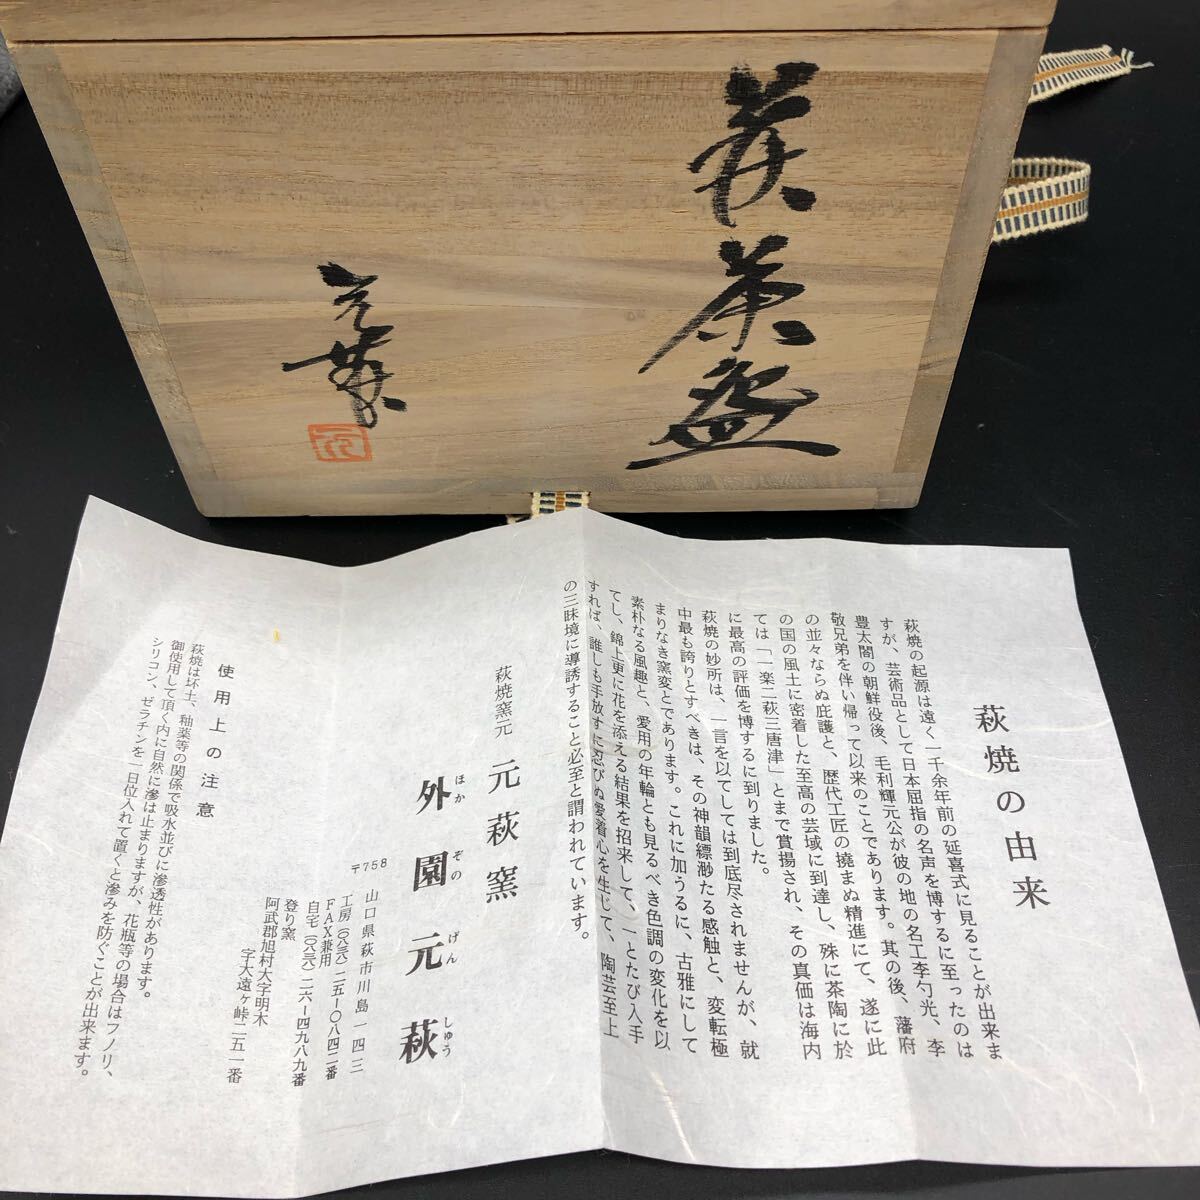 萩茶盌
元萩
萩焼の由来
萩焼の起源は遠く一千余年前の延喜式に見ることが出来ま
すが、芸術品として日本屈指の名声を博するに至ったのは
豊太閤の朝鮮役後、毛利輝元公が彼の地の名工李勺光、李
敬兄弟を伴い帰って以来のことであります。其の後、藩府
の並々ならぬ庇護と、歴代工匠の撓まぬ精進にて、遂に此
の国の風土に密着した至高の芸域に到達し、殊に茶陶に於
ては「一楽二萩三唐津」とまで賞揚され、その真価は海内
に最高の評価を博するに到りました。
萩焼の妙所は、一言を以てしては到底尽されませんが、就
中最も誇りとすべきは、その神韻縹渺たる感触と、変転極
まりなき窯変とであります。これに加うるに、古雅にして
素朴なる風趣と、愛用の年輪とも見るべき色調の変化を以
てし、錦上更に花を添える結果を招来して、一とたび入手
すれば、誰しも手放すに忍びぬ愛着心を生じて、陶芸至上
の三昧境に導誘すること必至と謂われています。
萩焼窯元 元萩窯
外園元萩
ほか ぞの げん しゅう
〒758 山口県萩市川島一四三
工房(〇八三八)二五-〇八四二番
FAX兼用
自宅(〇八三八)二六-四九八九番
登り窯
阿武郡旭村大字明木
字大遠ヶ峠二五一番
使用上の注意
萩焼は坏土、釉薬等の関係で吸水並びに滲透性があります。
御使用して頂く内に自然に滲は止まりますが、花瓶等の場合はフノリ、
シリコン、ゼラチンを一日位入れて置くと滲みを防ぐことが出来ます。